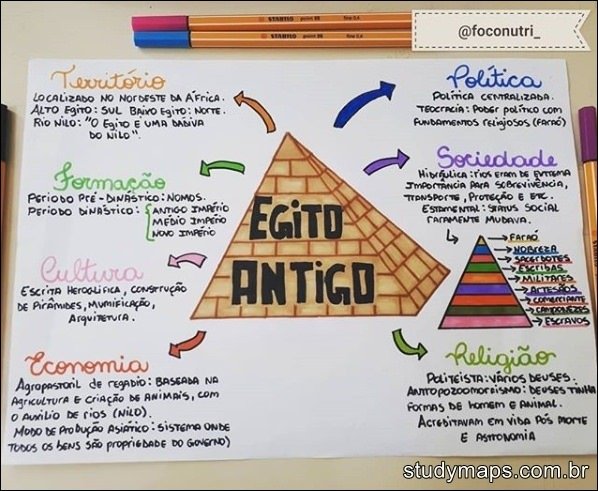 STABILO point 88 fine 0,4
STABILO point 88 fine 0,4
@foconutri_
Território
LOCALIZADO NO NORDESTE DA ÁFRICA.
ALTO EGITO: SUL BAIXO EGITO: NORTE.
RIO NILO: "O EGITO É UMA DÁDIVA
DO NILO".
Formação
PERÍODO PRÉ-DINÁSTICO: NOMOS.
PERÍODO DINÁSTICO:
ANTIGO IMPÉRIO
MÉDIO IMPÉRIO
NOVO IMPÉRIO
Cultura
ESCRITA HEROGLÍFICA, CONSTRUÇÃO
DE PIRÂMIDES, MUMIFICAÇÃO,
ARQUITETURA.
Economia
AGROPASTORIL DE REGADIO: BASEADA NA
AGRICULTURA E CRIAÇÃO DE ANIMAIS, COM
O AUXÍLIO DE RIOS (NILO).
MODO DE PRODUÇÃO ASIÁTICO: SISTEMA ONDE
TODOS OS BENS SÃO PROPRIEDADE DO GOVERNO)
EGITO
ANTIGO
Política
POLÍTICA CENTRALIZADA.
TEOCRACIA: PODER POLÍTICO COM
FUNDAMENTOS RELIGIOSOS (FARAÓ)
Sociedade
HIDRÁULICA: RIOS ERAM DE EXTREMA
IMPORTÂNCIA PARA SOBREVIVÊNCIA,
TRANSPORTE, PROTEÇÃO E ETC.
ESTAMENTAL: STATUS SOCIAL
RARAMENTE MUDAVA.
FARAÓ
NOBREZA
SACERDOTES
ESCRIBAS
MILITARES
ARTESÃOS
COMERCIANTE
CAMPONEZES
ESCRAVOS
Religião
POLITEÍSTA: VÁRIOS DEUSES.
ANTROPOZOOMORFISMO: DEUSES TINHA
FORMAS DE HOMEM E ANIMAL.
ACREDITAVAM EM VIDA PÓS MORTE
E ASTRONOMIA
studymaps.com.br